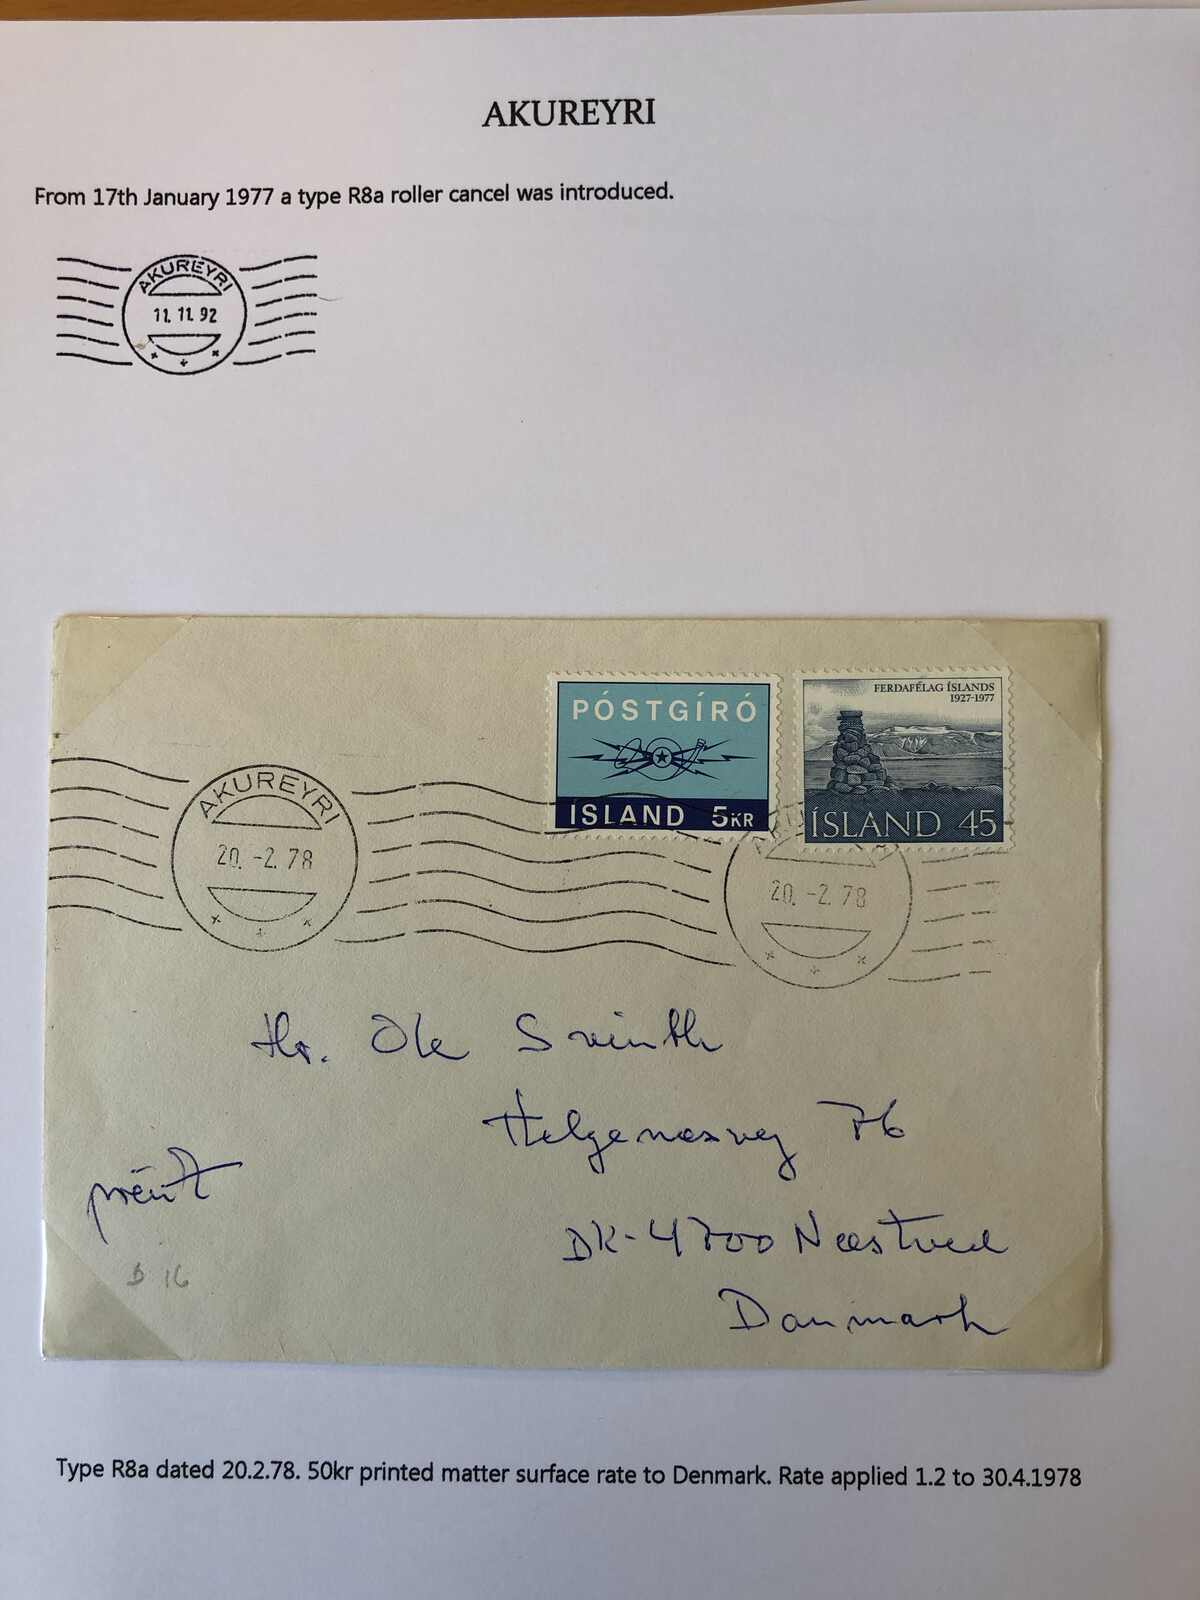 AKUREYRI
From 17th January 1977 a type R8a roller cancel was introduced.
AKUREYRI
11. 11. 92
PÓSTGÍRÓ
ÍSLAND 5KR
FERÐAFÉLAG ÍSLANDS
1927-1977
ÍSLAND 45
AKUREYRI
20. -2. 78
20. -2. 78
Hr. Ole Svinth
Helgenæsvej 76
prent
DK-4700 Næstved
Danmark
16
Type R8a dated 20.2.78. 50kr printed matter surface rate to Denmark. Rate applied 1.2 to 30.4.1978